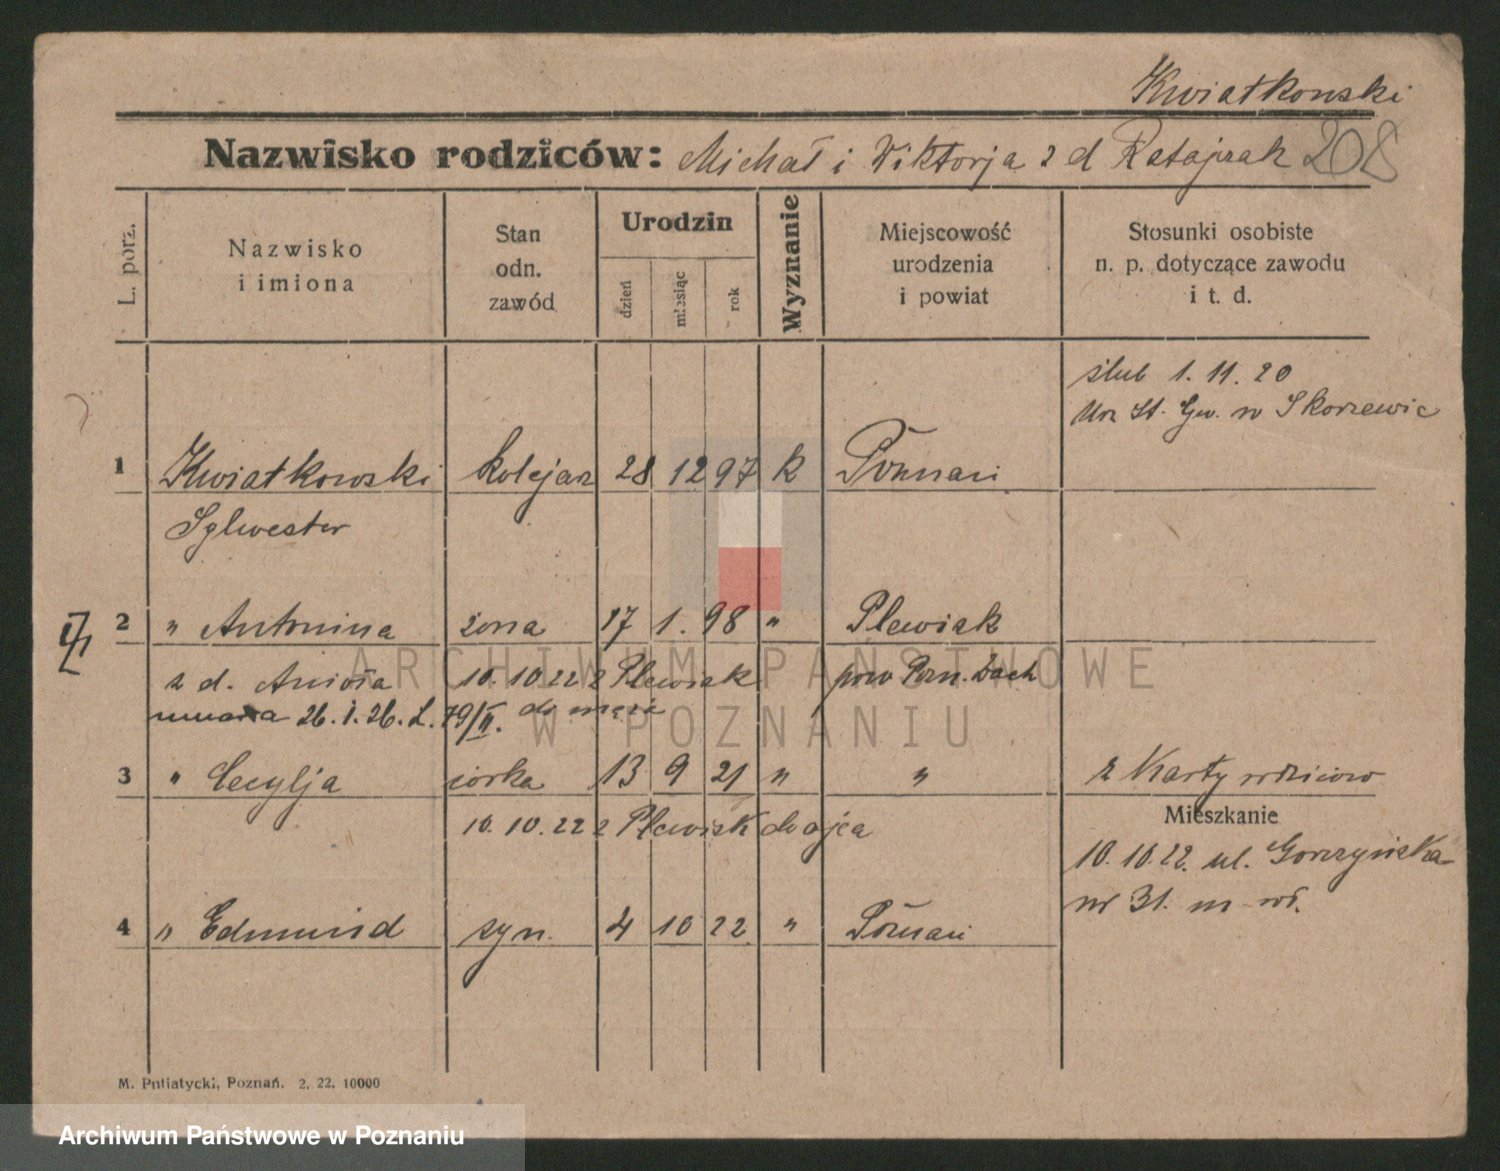 Kwiatkowski
Nazwisko rodziców: Michał i Wiktorja z d Ratajzak 208
L. porz.
Nazwisko
i imiona
Stan
odn.
zawód
Urodzin
dzień
miesiąc
rok
Wyznanie
Miejscowość
urodzenia
i powiat
Stosunki osobiste
n. p. dotyczące zawodu
i t. d.
ślub 1. 11. 20
Urz St. Gw. w Skorzewie
1 Kwiatkowski kolejarz 28 12 97 k Poznań
Sylwester
2 " Antonina żona 17 1. 98 " Plewisk
z d. Anioła 10. 10 22 z Plewisk pow Pozn. Zach
26. 1. 26. L. 79/II. do męża
3 " Cecylja córka 13 9 21 " " z Karty rodziców
10. 10. 22 z Plewisk do ojca
Mieszkanie
10. 10.22. ul. Gorczyńska
nr 31. m wł.
4 " Edmund syn. 4 10 22 " Poznań
M. Putiatycki, Poznań. 2. 22. 10000
ARCHIWUM PAŃSTWOWE
W POZNANIU
Archiwum Państwowe w Poznaniu